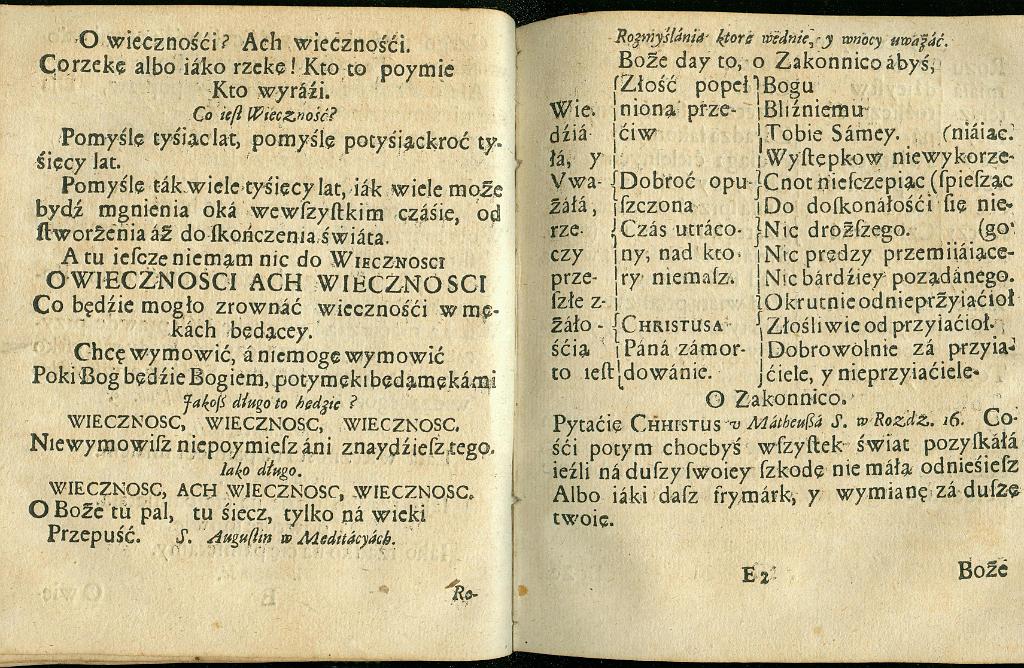 O wiecznośći? Ach wiecznośći.
Co rzekę albo iáko rzekę! Kto to poymie
Kto wyráźi.
Co ieſt Wieczność?
Pomyślę tyśiąc lat, pomyślę potyśiąckroć ty-
śięcy lat.
Pomyślę ták wiele tyśięcy lat, iák wiele może
bydź mgnienia oká wewſzyſtkim czáśie, od
ſtworżenia áż do ſkończenia świáta.
A tu ieſcze niemam nic do WIECZNOSCI
O WIECZNOSCI ACH WIECZNOSCI
Co będźie mogło zrownáć wiecznośći w mę-
kách będącey.
Chcę wymowić, á niemogę wymowić
Poki Bog będźie Bogiem, potym ęki będą mękámi
Jakoſs długo to będzie ?
WIECZNOSC, WIECZNOSC, WIECZNOSC.
Niewymowiſz niepoymieſz áni znaydźieſz tego.
Iako długo.
WIECZNOSC, ACH WIECZNOSC, WIECZNOSC.
O Boże tu pal, tu śiecz, tylko ná wieki
Przepuść. S. Auguſtin w Meditácyách.
Ro-
Rozmyślánia ktore wednie, y wnocy uważáć.
Boże day to, o Zakonnico ábyś,
Złość popeł Bogu
Wie. niona prze- Bliźniemu
dźiá- ćiw Tobie Sámey. (niáiąc.
łá, y Wyſtępkow niewykorze-
Vwa- Dobroć opu- Cnot nieſczepiąc (ſpieſząc
żáłá, ſzczona Do doſkonáłośći ſię nie-
rze- Czás utráco- Nic droższego. (go
czy ny, nad kto- Nic prędzy przemiiáiące-
prze- ry niemaſz. Nic bárdźiey pożądánego.
ſzłe z- Okrutnie od nieprżyiaćioł
żáło- CHRISTUSA Złośliwie od przyiaćioł.
śćia Páná zámor- Dobrowolnie zá przyia-
to ieſt dowánie. ćiele, y nieprzyiaćiele.
O Zakonnico.
Pytáćie CHHISTUS v Mátheuſsá S. w Rozdż. 16. Co-
śći potym chocbyś wſzyſtek świat pozyſkáłá
ieźli ná duſzy ſwoiey ſzkodę nie máłą odnieśieſz
Albo iáki daſz frymárk, y wymianę zá duſzę
twoię.
E 2
Boże